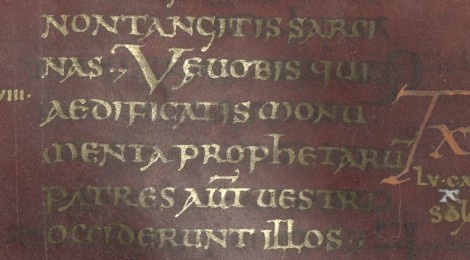 NONTANGITIS SARCI
NAS·, VEUOBIS QUI
VIII. AEDIFICATIS MONU
MENTA PROPHETARŪ
PATRES AUT̄ UESTRI
OCCIDERUNT ILLOS·,